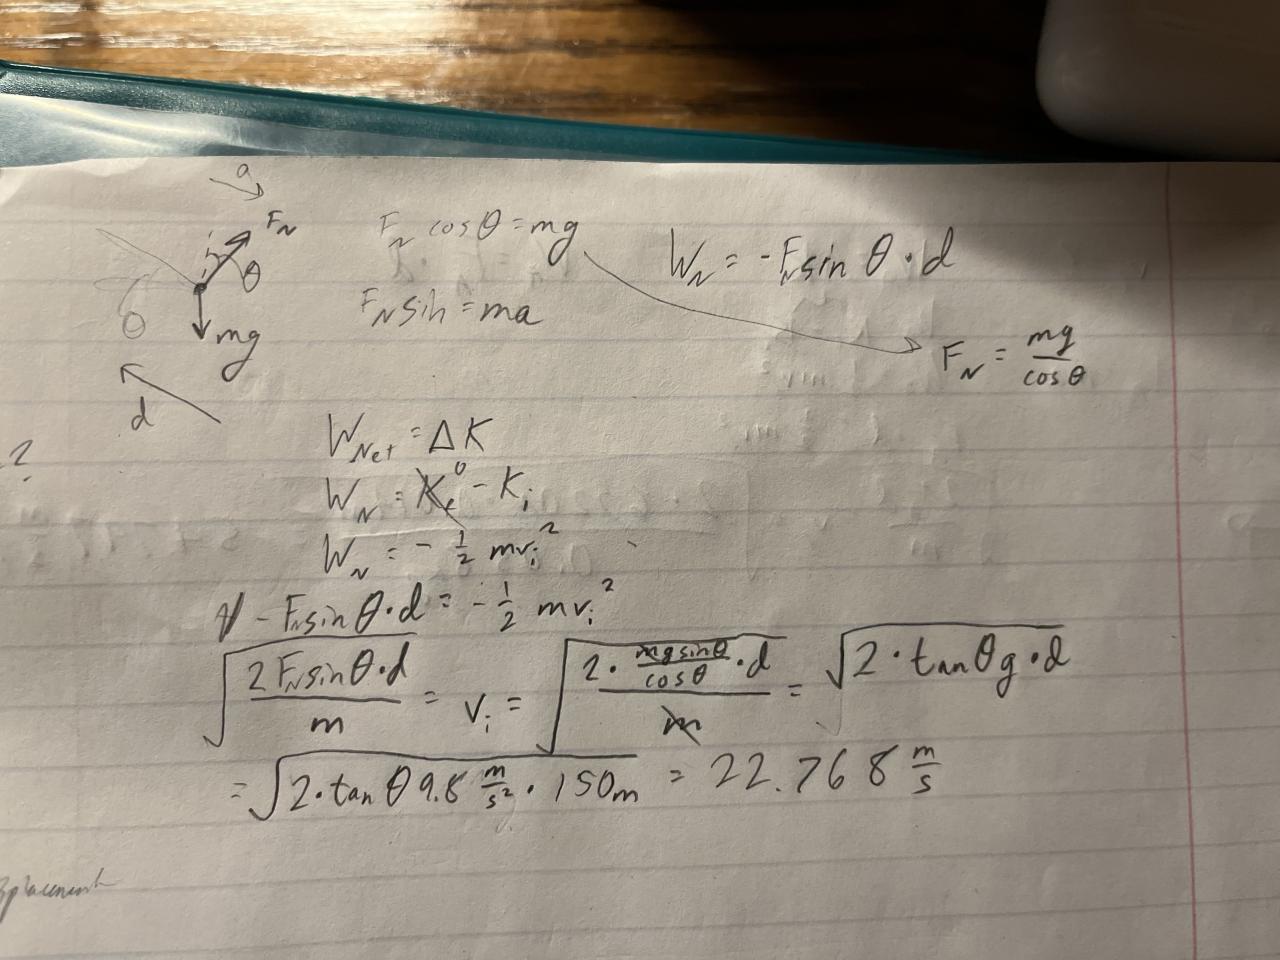 a
F_N
θ
mg
θ
d
F_N cosθ = mg
F_N sin = ma
W_N = -F_N sin θ · d
F_N = mg/cosθ
2
W_Net = ΔK
W_N = K_f^0 - K_i
W_N = - 1/2 mv_i^2
-F_N sin θ · d = - 1/2 mv_i^2
√(2 F_N sin θ · d / m) = v_i = √(2 · (mg sinθ / cosθ) · d / m) = √(2 · tan θ g · d)
= √(2 · tan θ 9.8 m/s² · 150m) = 22.768 m/s